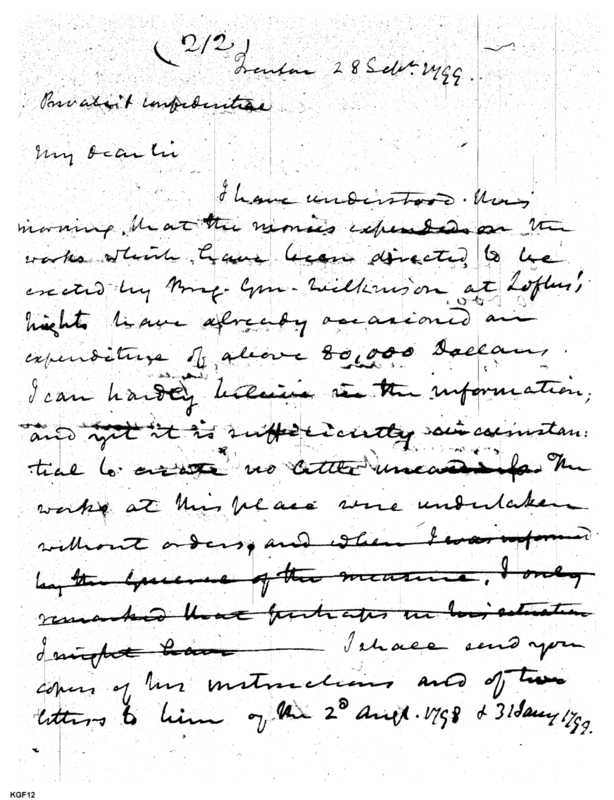 (212)
Trenton 28 Sept. 1799.
Private & confidential
My Dear Sir
I have understood this
morning, that the monies expended on the
works which have been directed to be
erected by Brig. Gen. Wilkinson at Loftus's
hights have already occasioned an
expenditure of above 80,000 Dollars.
I can hardly believe in the information;
and yet it is sufficiently circumstan:
tial to create no little uneasiness. The
works at this place were undertaken
without orders, and when I was informed
by the General of the measure, I only
remarked that perhaps in his situation
I might have I shall send you
copies of his instructions and of two
letters to him of the 2d Augt. 1798 & 31 Jany 1799.
KGF12